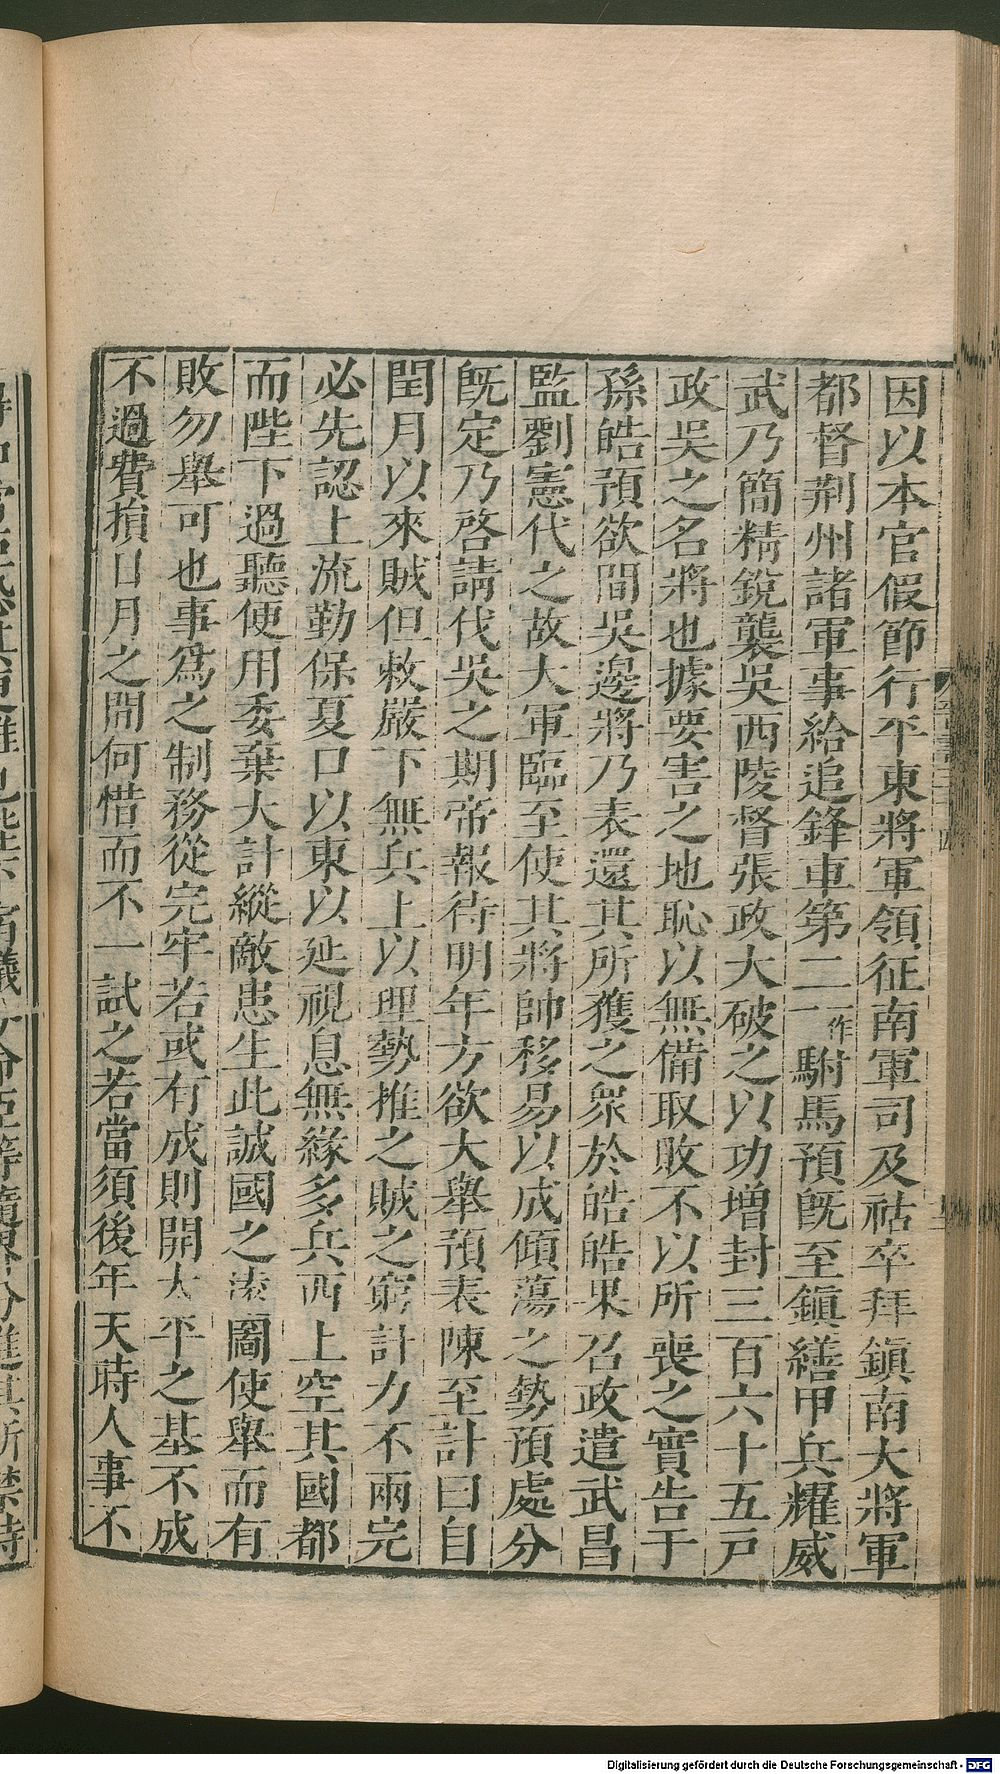 因以本官假節行平東將軍領征南軍司及祜卒拜鎮南大將軍
都督荆州諸軍事給追鋒車第二一作駙馬預旣至鎮繕甲兵耀威
武乃簡精銳襲吳西陵督張政大破之以功增封三百六十五戸
政吳之名將也據要害之地恥以無備取敗不以所喪之實告于
孫皓預欲間吳邊將乃表還其所獲之衆於皓皓果召政遣武昌
監劉憲代之故大軍臨至使其將帥移易以成傾蕩之勢預處分
旣定乃啓請伐吳之期帝報待明年方欲大舉預表陳至計曰自
閏月以來賊但敕嚴下無兵上以理勢推之賊之窮計力不兩完
必先認上流勤保夏口以東以延視息無緣多兵西上空其國都
而陛下過聽使用委棄大計縱敵患生此誠國之遠圖使舉而有
敗勿舉可也事爲之制務從完牢若或有成則開太平之基不成
不過費損日月之間何惜而不一試之若當須後年天時人事不
Digitalisierung gefördert durch die Deutsche Forschungsgemeinschaft - DFG